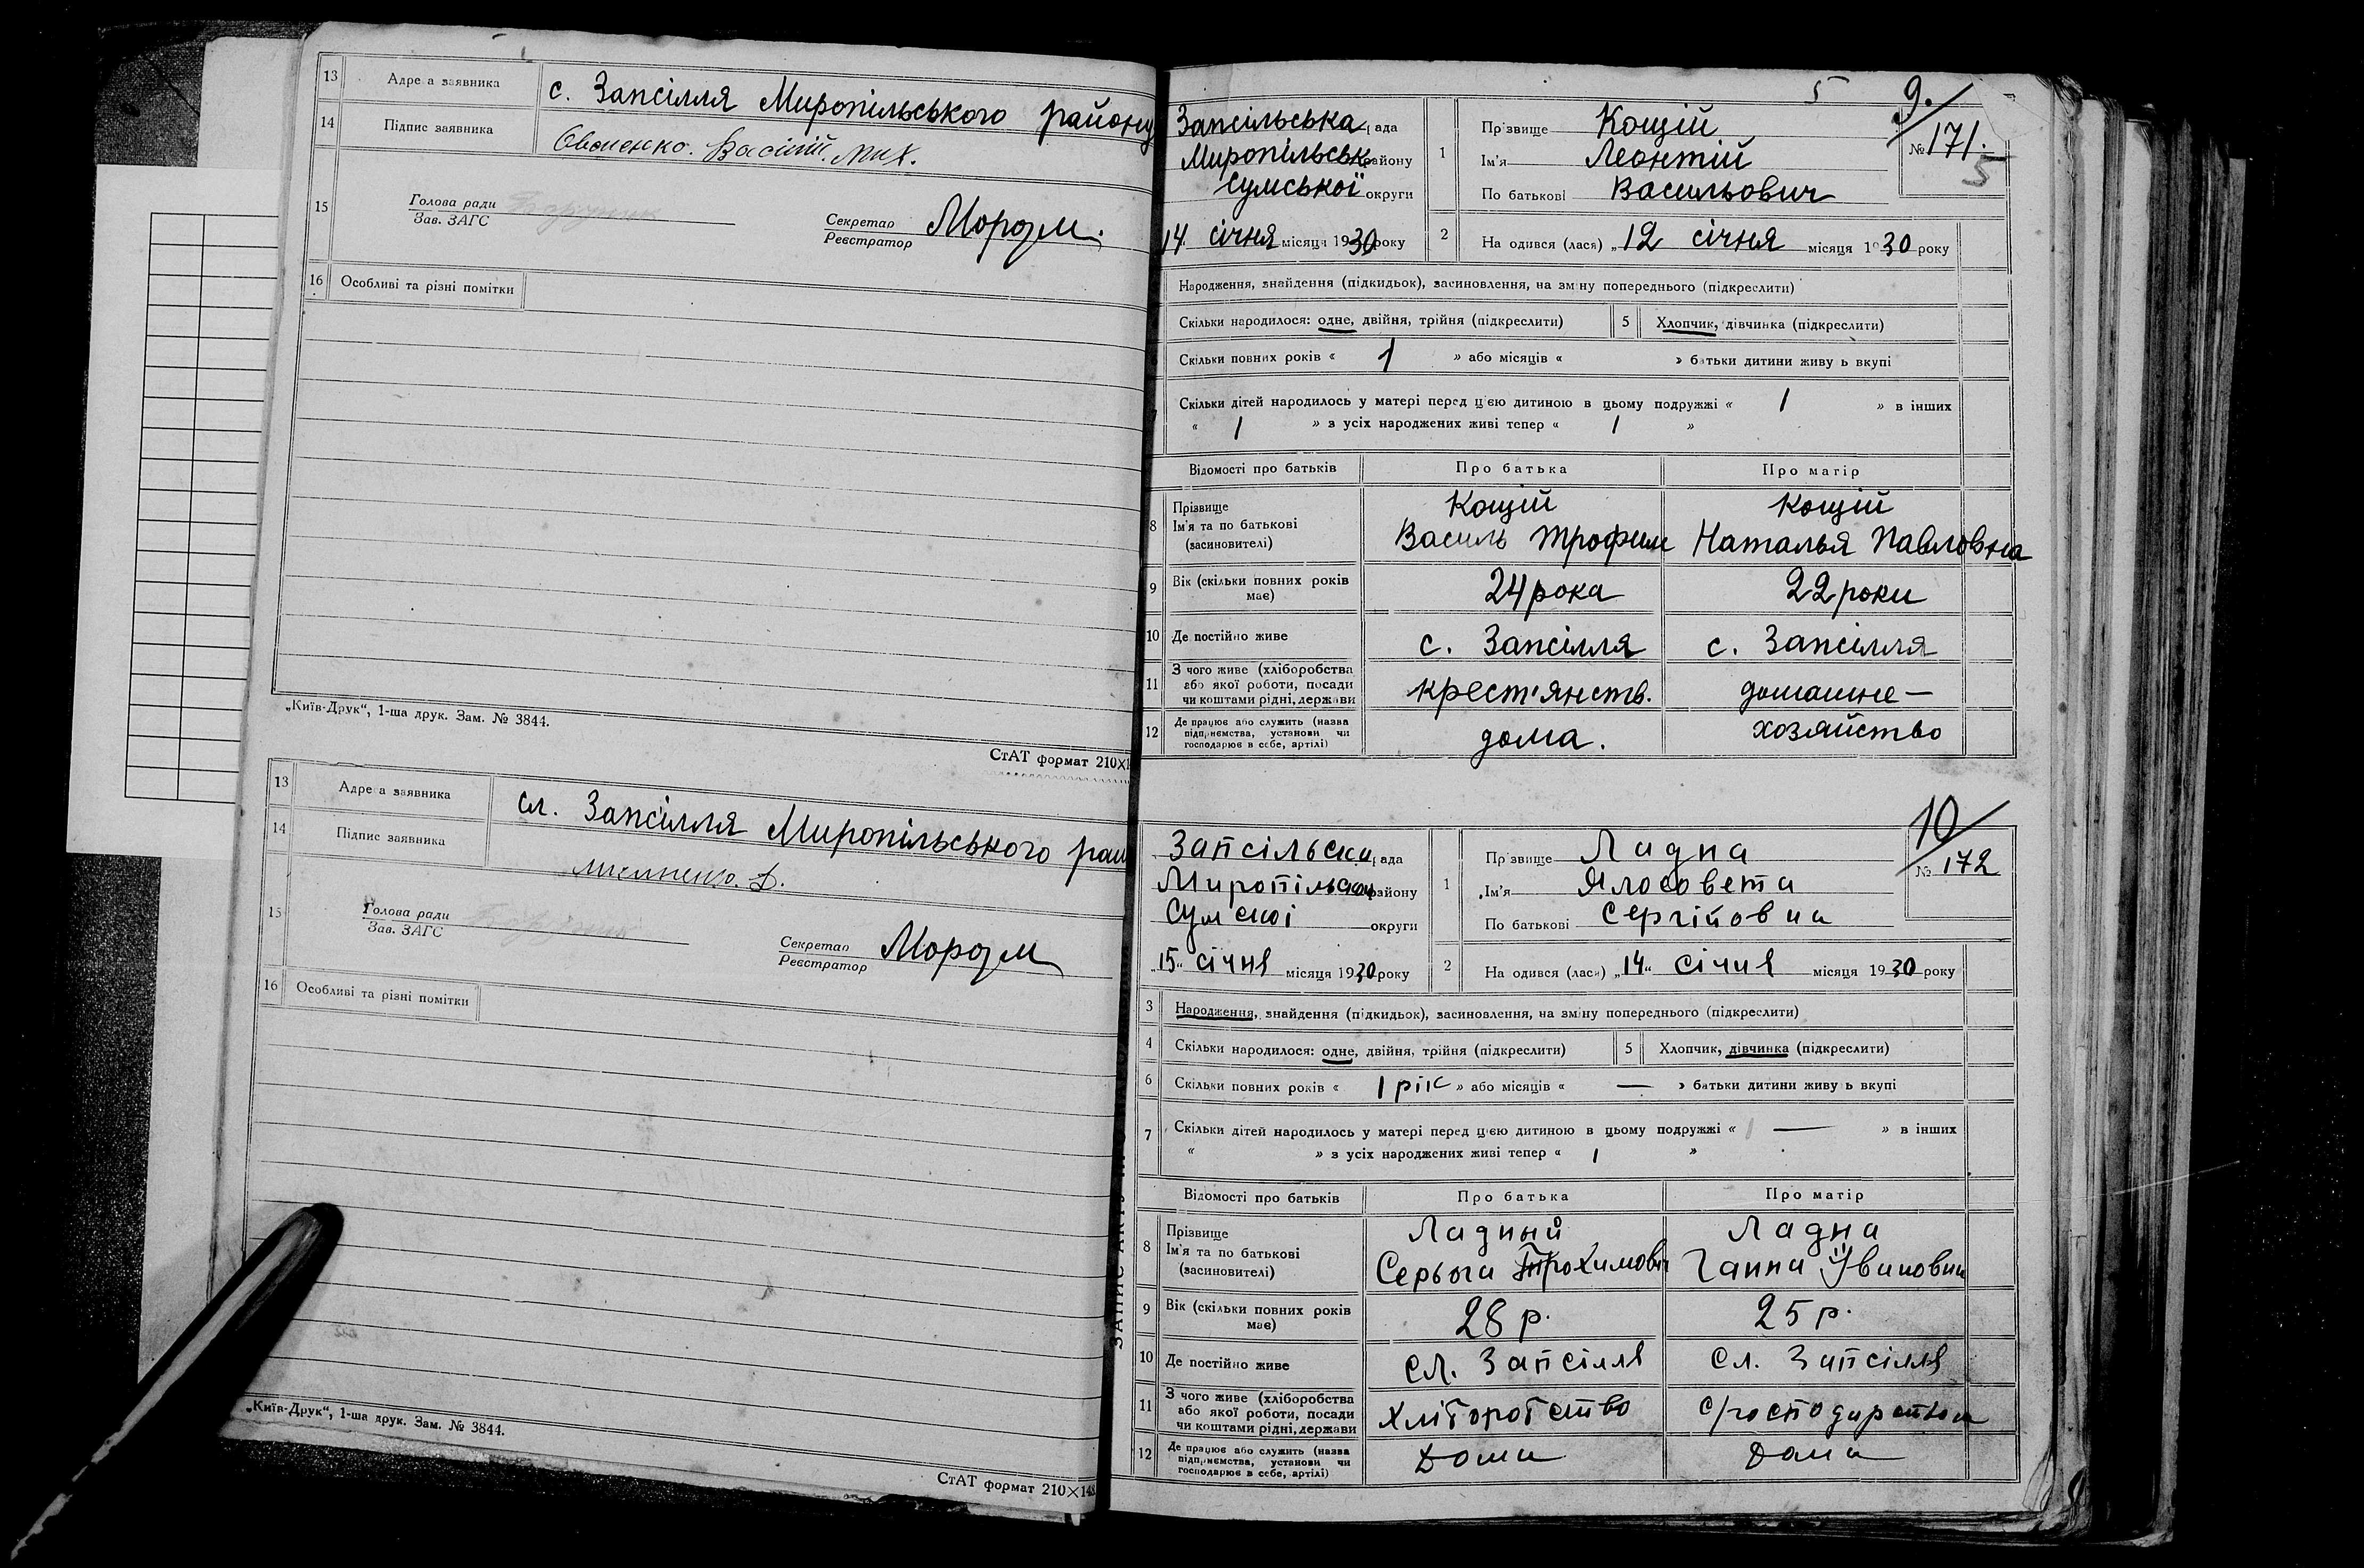 13 Адреса заявника с. Запсілля Миропільського району
14 Підпис заявника
15 Голова ради
Зав. ЗАГС
Секретар
Реєстратор
16 Особливі та різні помітки
„Київ-Друк“, 1-ша друк. Зам. № 3844.
СтАТ формат 210×1
13 Адреса заявника сл. Запсілля Миропільського рай
14 Підпис заявника
15 Голова ради
Зав. ЗАГС
Секретар
Реєстратор
16 Особливі та різні помітки
„Київ-Друк“, 1-ша друк. Зам. № 3844.
СтАТ формат 210×148
5 9.
Запсільська рада
Миропільськ району
Сумської округи
14 січня місяця 1930 року
1 Прізвище Кощій
Ім'я Леонтій
По батькові Васильович
№ 171.
5
2 Народився (лася) „12 січня місяця 1930 року
Народження, знайдення (підкидьок), засиновлення, на зміну попереднього (підкреслити)
Скільки народилося: одне, двійня, трійня (підкреслити) 5 Хлопчик, дівчинка (підкреслити)
Скільки повних років « 1 » або місяців « » батьки дитини живуть вкупі
Скільки дітей народилось у матері перед цією дитиною в цьому подружжі « 1 » в інших
« 1 » з усіх народжених живі тепер « 1 »
Відомості про батьків Про батька Про матір
8 Прізвище Кощій Кощій
Ім'я та по батькові Василь Трофим Наталья Павловна
(засиновителі)
9 Вік (скільки повних років має) 24 рока 22 роки
10 Де постійно живе с. Запсілля с. Запсілля
11 З чого живе (хліборобства або якої роботи, посади чи коштами рідні, держави крест'янств. домашне-
12 Де працює або служить (назва підприємства, установи чи господарює в себе, артілі) дома. хозяйство
10
Запсільська рада
Миропільськ району
Сумскої округи
„15“ січня місяця 1930 року
1 Прізвище Ладна
Ім'я Ялосовета
По батькові Сергійовна
№ 172
2 Народився (лася) „14“ січня місяця 1930 року
3 Народження, знайдення (підкидьок), засиновлення, на зміну попереднього (підкреслити)
4 Скільки народилося: одне, двійня, трійня (підкреслити) 5 Хлопчик, дівчинка (підкреслити)
6 Скільки повних років « 1 рік » або місяців « — » батьки дитини живуть вкупі
7 Скільки дітей народилось у матері перед цією дитиною в цьому подружжі « 1 — » в інших
« » з усіх народжених живі тепер « 1 »
Відомості про батьків Про батька Про матір
8 Прізвище Ладный Ладна
Ім'я та по батькові Серьога Трохимович Ганна Івановна
(засиновителі)
9 Вік (скільки повних років має) 28 р. 25 р.
10 Де постійно живе сл. Запсілля сл. Запсілля
11 З чого живе (хліборобства або якої роботи, посади чи коштами рідні, держави хліборобство с/господарством
12 Де працює або служить (назва підприємства, установи чи господарює в себе, артілі) Дома Дома